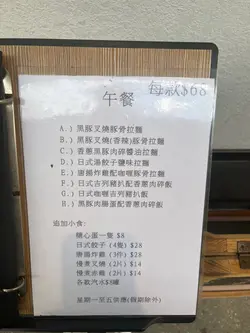 每款$68
午餐
A.) 黑豚叉燒豚骨拉麵
B.) 黑豚叉燒(香辣)豚骨拉麵
C.) 香蔥黑豚肉碎醬油拉麵
D.) 日式湯餃子鹽味拉麵
E.) 唐揚炸雞配咖喱豚骨拉麵
F.) 日式吉列豬扒配香蔥肉碎飯
G.) 日式咖喱吉列豬扒飯
H.) 黑豚肉腸蛋配香蔥肉碎飯
追加小食:
糖心蛋一隻 $8
日式餃子 (4隻) $28
唐揚炸雞 (3件) $28
慢煮叉燒 (2片) $14
慢煮赤雞 (2片) $14
各款汽水$8罐
星期一至五供應(假期除外)